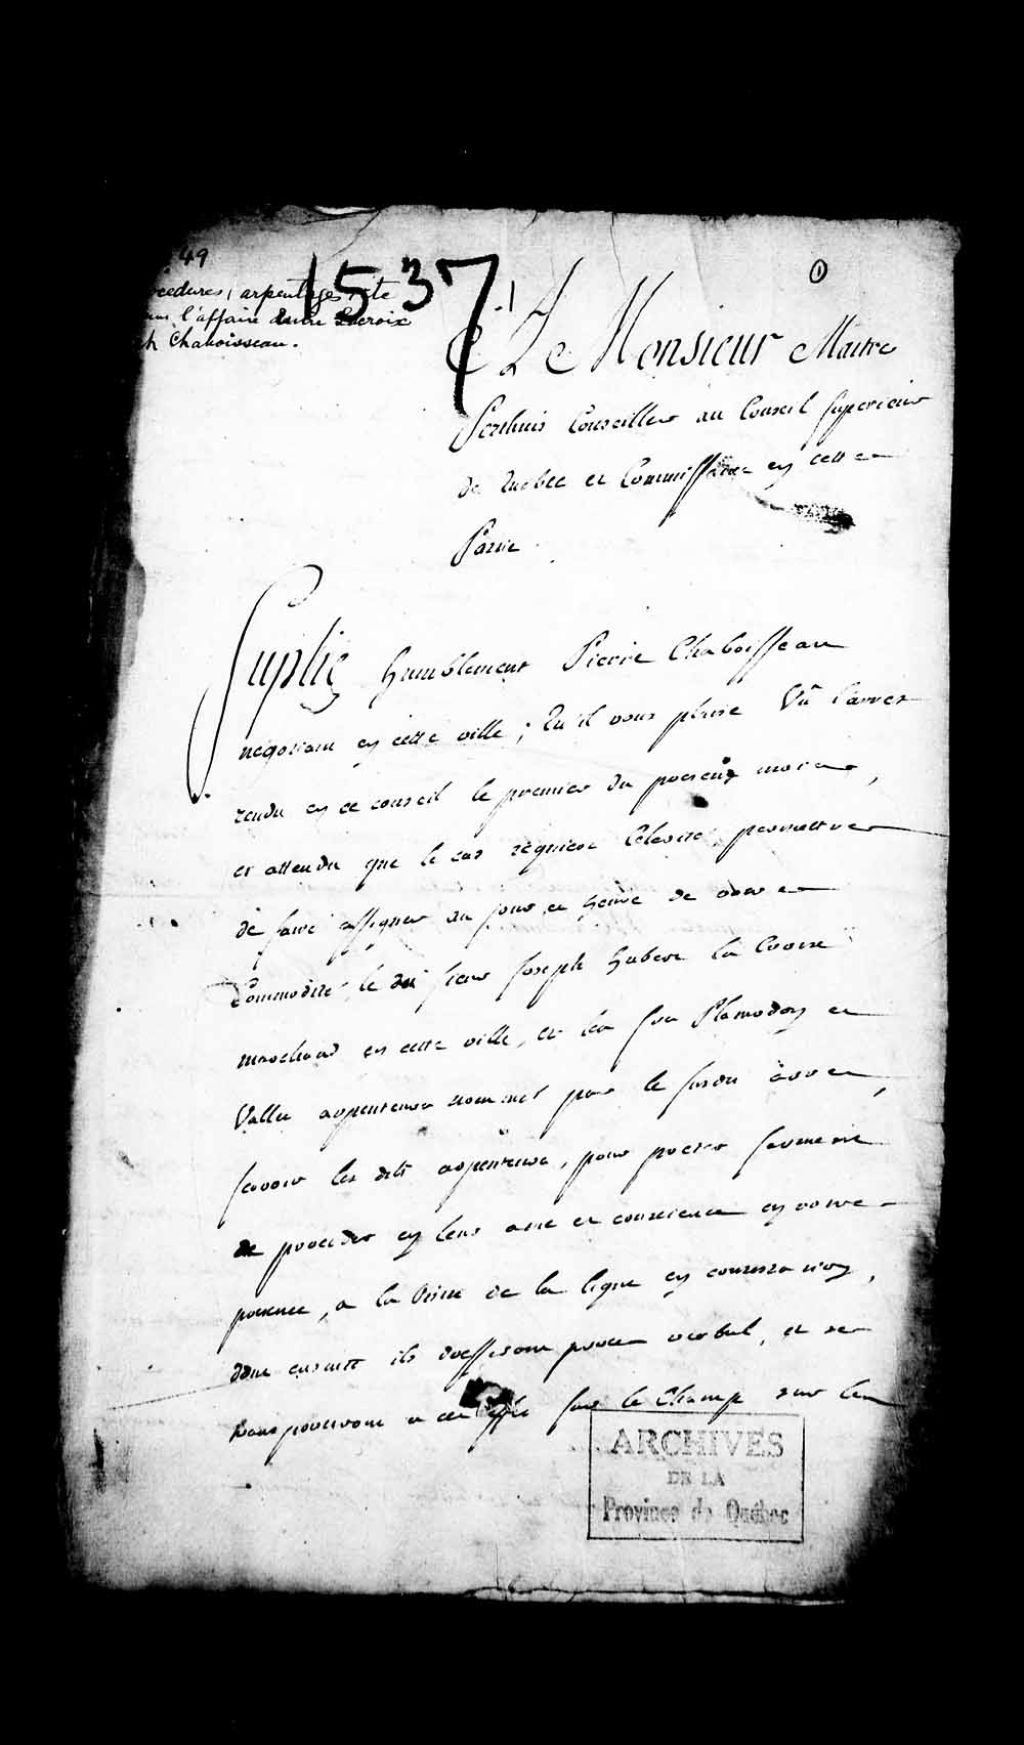 49
1537
①
cedures, arpentages, etc
l'affaire entre Lacroix
Chaboisseau.
A Monsieur Maitre
Perthuis Conseiller au Conseil Superieur
de Quebec et Commissaire en cette
Partie
Suplie humblement Pierre Chaboisseau
negotiant en cette ville ; Qu'il vous plaise Vû l'arrest
rendu en ce conseil le premier du present mois,
et attendu que le cas requiere Celerité, permettre
de faire assigner au jour et heure de votre
Commodité le dit sieur Joseph hubert la Croix
marchand en cette ville, et les srs Plamodon et
Vallée arpenteurs nommés par le susdit arret,
scavoir les dits arpenteurs, pour prester serment
de proceder en leur ame et conscience en votre
presence, a la tirée de la ligne en contestation,
dont ensuitte ils dresseront procès verbal, et se
transporteront a cet effet sur le Champ sur les
ARCHIVES
DE LA
Province de Québec